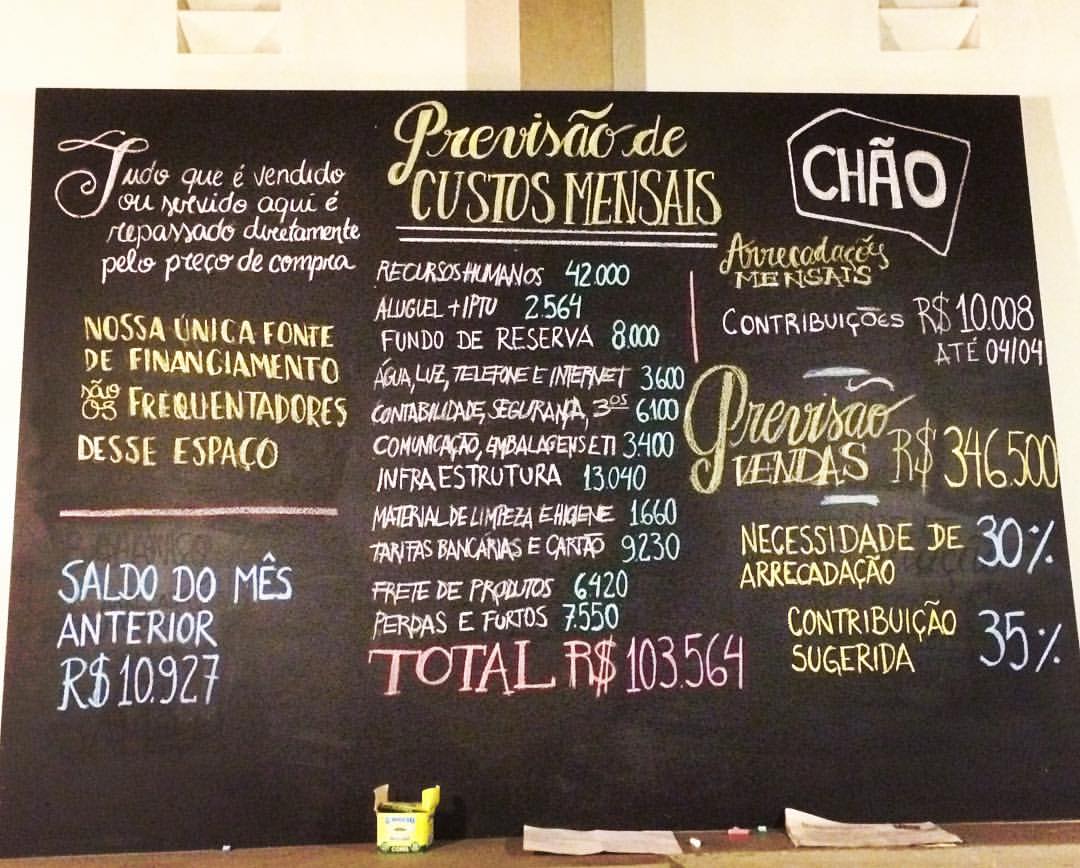 Tudo que é vendido
ou servido aqui é
repassado diretamente
pelo preço de compra
NOSSA ÚNICA FONTE
DE FINANCIAMENTO
são os FREQUENTADORES
DESSE ESPAÇO
SALDO DO MÊS
ANTERIOR
R$ 10.927
Previsão de
CUSTOS MENSAIS
RECURSOS HUMANOS 42.000
ALUGUEL + IPTU 2.564
FUNDO DE RESERVA 8.000
ÁGUA, LUZ, TELEFONE E INTERNET 3.600
CONTABILIDADE, SEGURANÇA, 3ºˢ 6.100
COMUNICAÇÃO, EMBALAGENS E TI 3.400
INFRA ESTRUTURA 13.040
MATERIAL DE LIMPEZA E HIGIENE 1.660
TARIFAS BANCÁRIAS E CARTÃO 9.230
FRETE DE PRODUTOS 6.420
PERDAS E FURTOS 7.550
TOTAL R$ 103.564
CHÃO
Arrecadações
MENSAIS
CONTRIBUIÇÕES R$ 10.008
ATÉ 04/04
Previsão
VENDAS R$ 346.500
NECESSIDADE DE
ARRECADAÇÃO 30%
CONTRIBUIÇÃO
SUGERIDA 35%